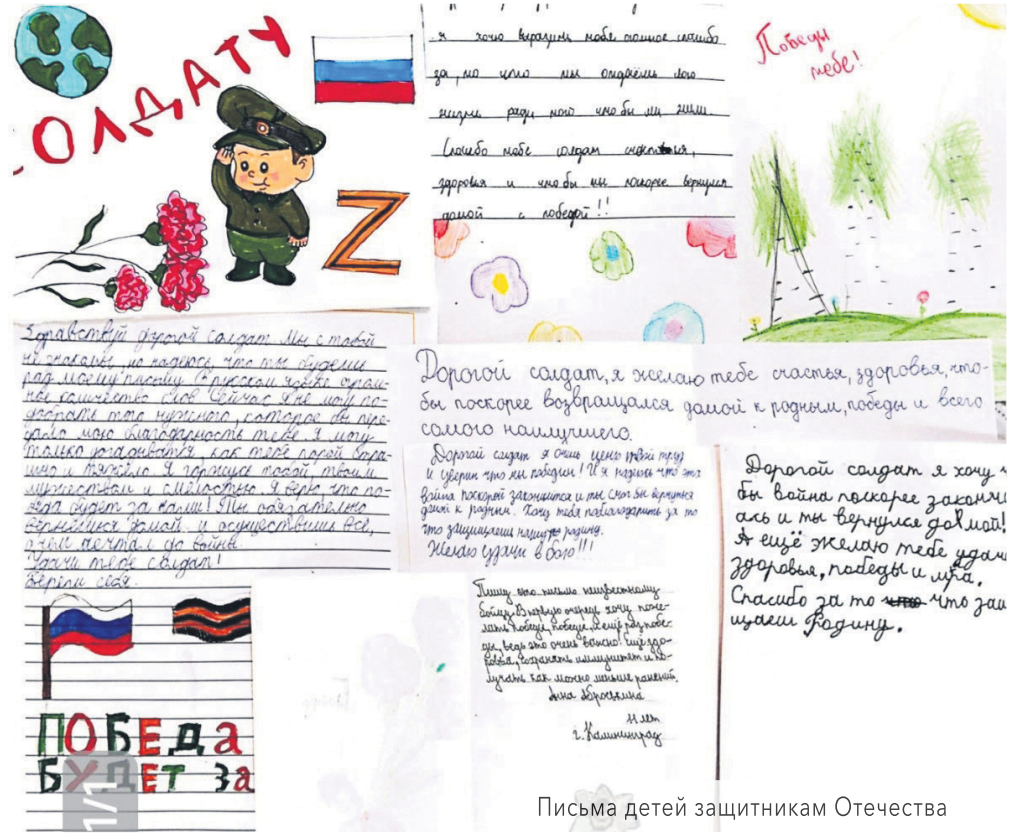 СОЛДАТУ
Z
я хочу выразить тебе огромное спасибо
за, то что ты отдаёшь свою
жизнь ради того что бы мы жили
Спасибо тебе солдат счастья,
здоровья и что бы ты поскорее вернулся
домой с победой!!
Победы
тебе!
Здравствуй дорогой солдат. Мы с тобой
не знакомы, но надеюсь, что ты будешь
рад моему письму. В русском языке огром-
ное количество слов. Сейчас я не могу по-
добрать того нужного, которое бы пере-
дало мою благодарность тебе. Я могу
только догадываться, как тебе порой стра-
шно и тяжело. Я горжусь тобой твоим
мужеством и смелостью. Я верю, что по-
беда будет за нами! Мы обязательно
вернёшься домой и осуществишь всё,
о чём мечтал до войны.
Удачи тебе солдат!
Береги себя.
Дорогой солдат, я желаю тебе счастья, здоровья, что-
бы поскорее возвращался домой к родным, победы и всего
самого наилучшего.
Дорогой солдат я очень ценю твой труд
и уверен что мы победим! И я надеюсь что эта
война поскорей закончится и ты смог бы вернуться
домой к родным. Хочу тебя поблагодарить за то
что защищаешь нашу родину.
Желаю удачи в бою!!!
Дорогой солдат я хочу ч
бы война поскорее законч
ась и ты вернулся домой!
Я ещё желаю тебе удачи
здоровья, победы и мра.
Спасибо за то что защ
ищаеш Родину.
Пишу это письмо неизвестному
бойцу. В первую очередь хочу поже-
лать победы, победы, и ещё раз побе-
ды, ведь это очень важно! Ещё здо-
ровья, сохранять иммунитет и по-
лучать как можно меньше ранений.
Анна
11 лет
г. Калининград
ПОБЕДа
БУДЕТ За
1/1
Письма детей защитникам Отечества